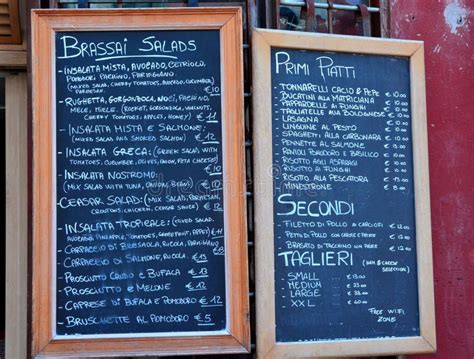 BRASSAI SALADS
-INSALATA MISTA, AVOCADO, CETRIOLO,
POMODORI PACHINO, PARMIGIANO.
(MIXED SALAD, AVOCADO, CUCUMBER,
€ 10
-RUGHETTA, GORGONZOLA, NOCI, PACHINO,
CHERRY TOMATOES, APPLES, HONEY) € 11
-INSALATA MISTA E SALMONE: € 12
-INSALATA GRECA: (GREEK SALAD WITH
TOMATOES, CUCUMBER, OLIVES, ONION, FETA CHEESE)
€ 10
-INSALATA NOSTROMO:
(MIX SALAD WITH TUNA, ONION) € 10
-CEASAR SALAD: (MIX SALAD, PARMESAN,
CROUTONS, CHICKEN) € 10
-INSALATA TROPICALE: (MIXED SALAD,
AVOCADO, PINEAPPLE, TOMATOES, GRAPEFRUIT)
CARPACCIO DI BRESAOLA, RUCOLA, PARM.
CARPACCIO DI SALMONE, RUCOLA
-PROSCIUTTO CRUDO E BUFALA € 13
-PROSCIUTTO E MELONE € 12
-CAPRESE DI BUFALA E POMODORO € 12
-BRUSCHETTE AL POMODORO € 5
PRIMI PIATTI
-TONNARELLI CACIO & PEPE € 10.00
-BUCATINI ALLA MATRICIANA € 10.00
-PAPPARDELLE AI FUNGHI € 10.00
-TAGLIATELLE ALLA BOLOGNESE € 10.00
-LASAGNA € 10.00
-LINGUINE AL PESTO € 10.00
-SPAGHETTI ALLA CARBONARA € 10.00
-PENNETTE AL SALMONE € 10.00
-RAVIOLI POMODORO E BASILICO € 10.00
-RISOTTO AGLI ASPARAGI € 10.00
-RISOTTO AI FUNGHI € 10.00
-RISOTTO ALLA PESCATORA € 10.00
-MINESTRONE € 10.00
SECONDI
-FILETTO DI POLLO AI CARCIOFI € 12.00
-PETTO DI POLLO € 12.00
-BRASATO DI TACCHINO € 12.00
TAGLIERI (HAM & CHEESE
SELECTION)
-SMALL €
-MEDIUM €
-LARGE €
-XXL €
FREE WIFI
ZONE